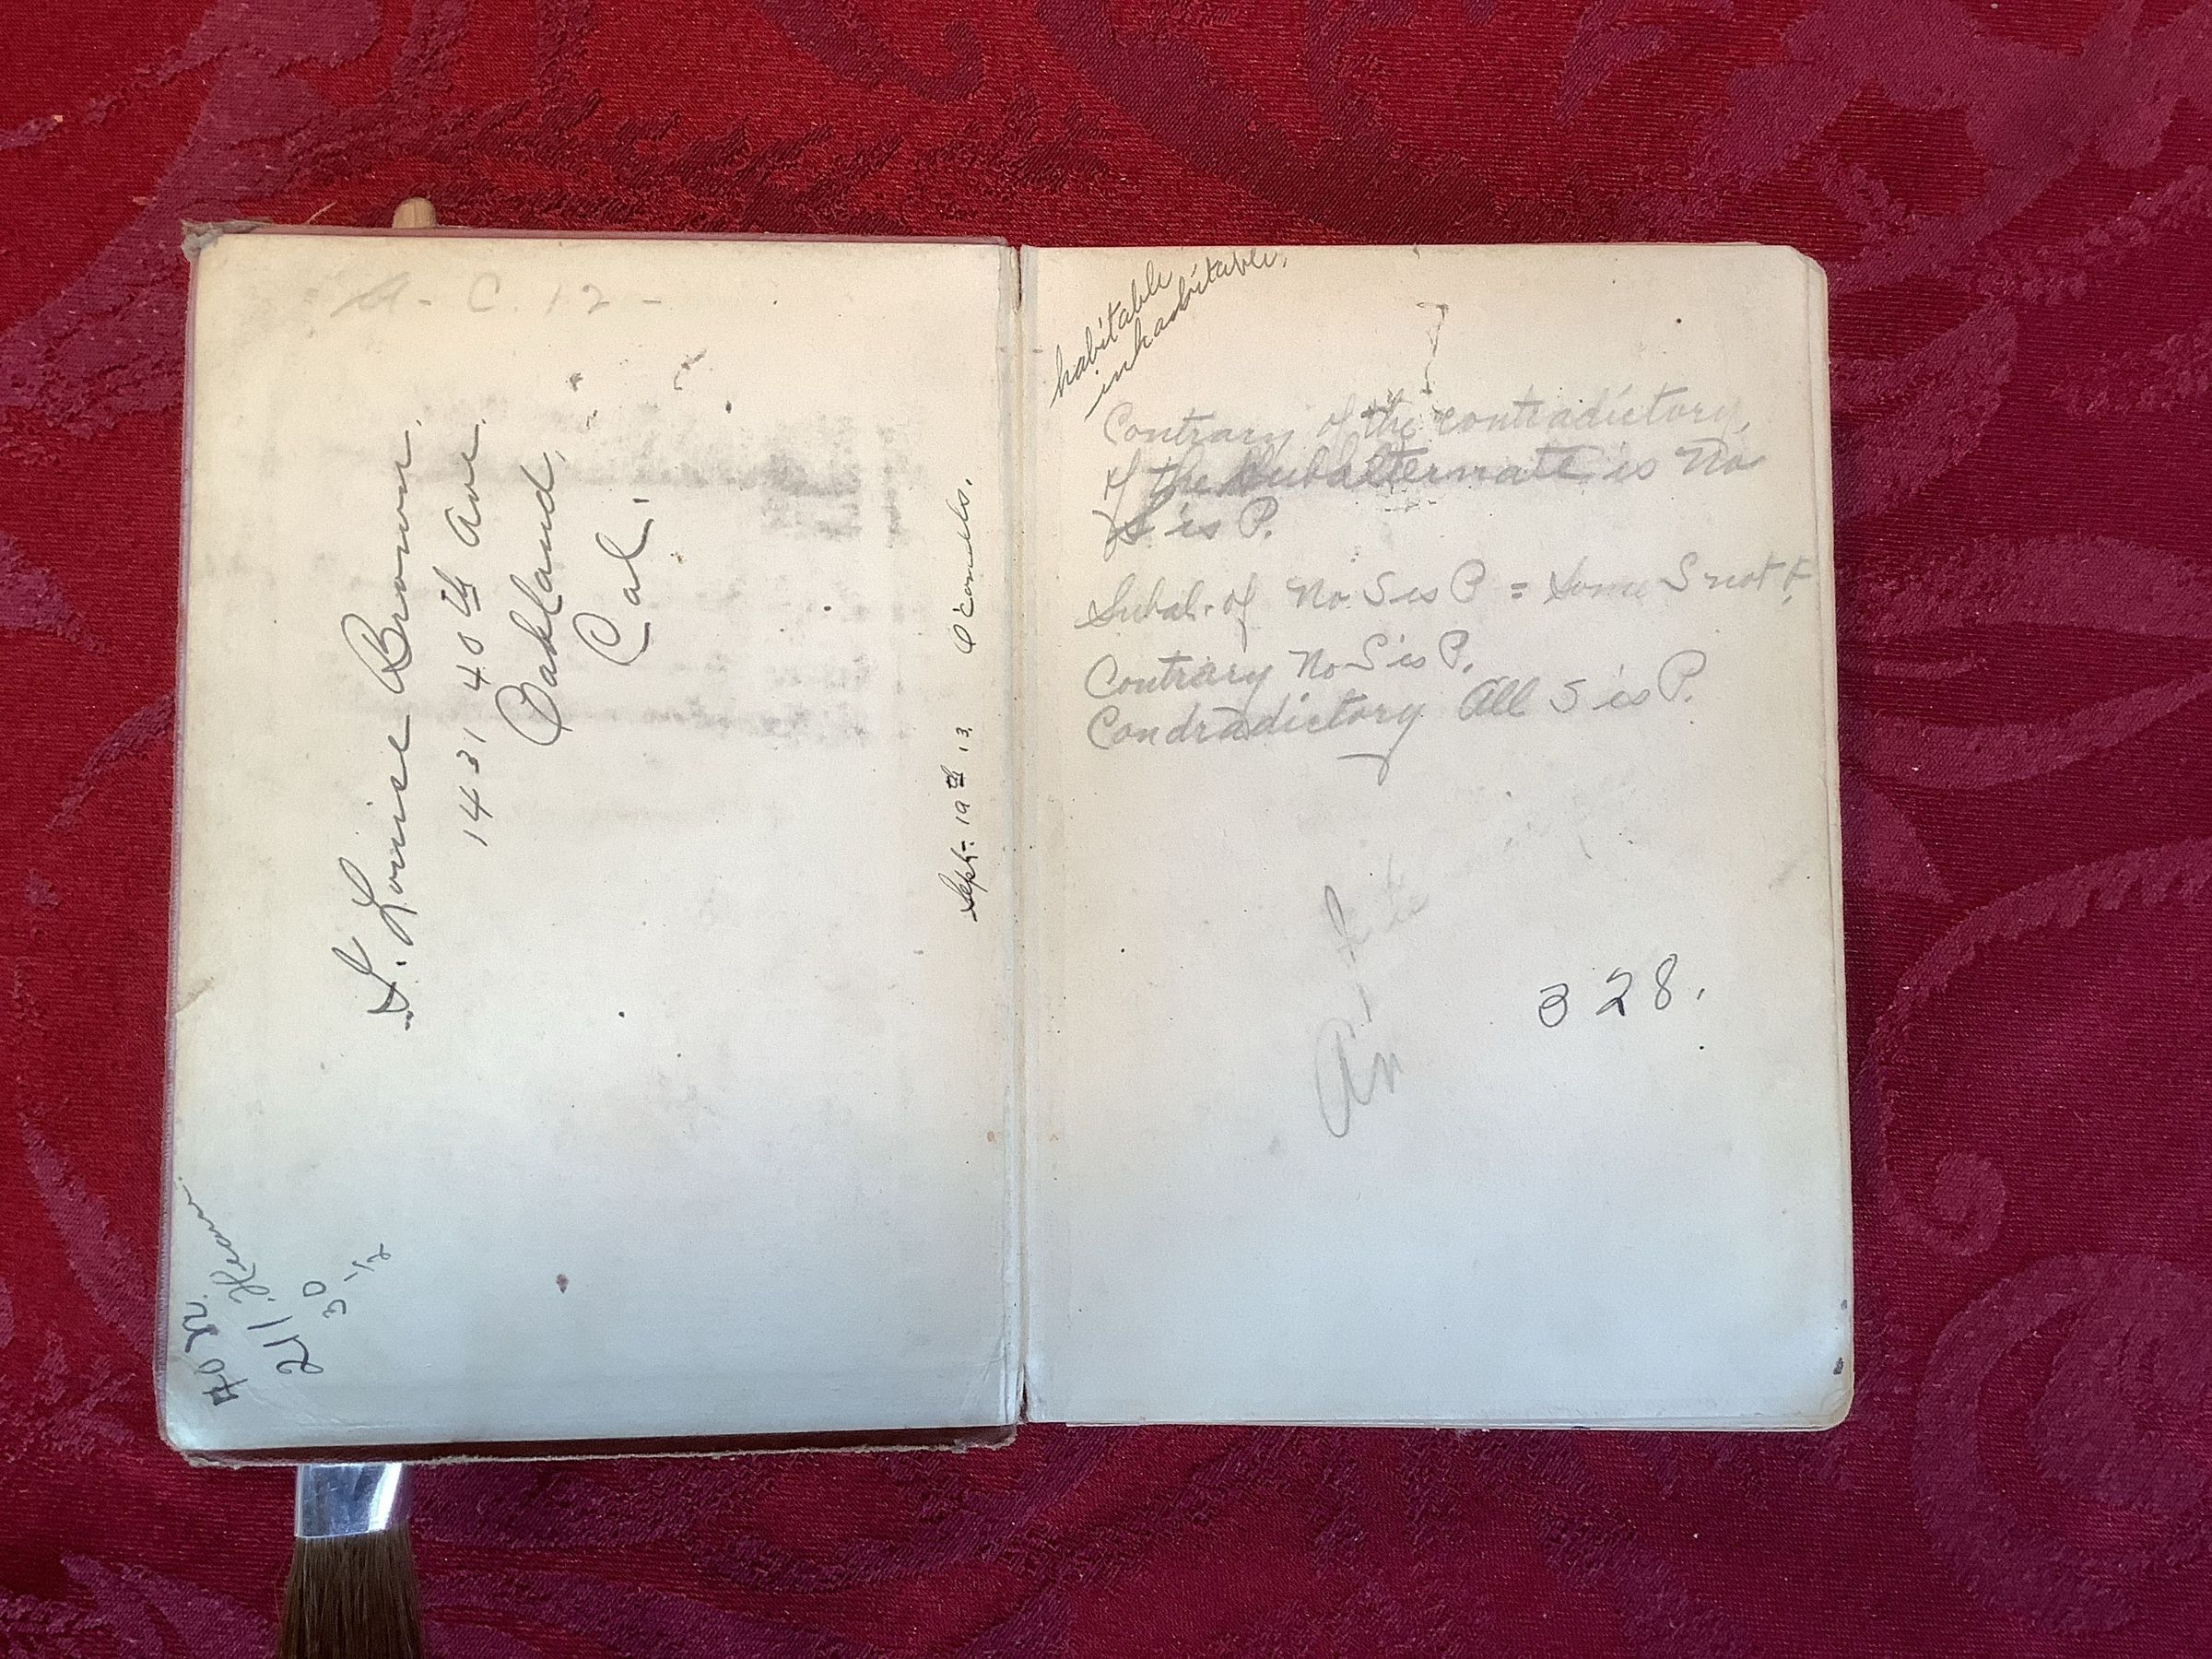 C. 12 -
Louise Brown.
1431 40th Ave.
Oakland,
Cal.
Sept- 19th 13.
211
30
habitable
inhabitable,
Contrary of the contradictory,
of the Subalternate is No
S is P.
Subal. of No S is P = Some S not
Contrary No S is P.
Condradictory All S is P.
328.
An